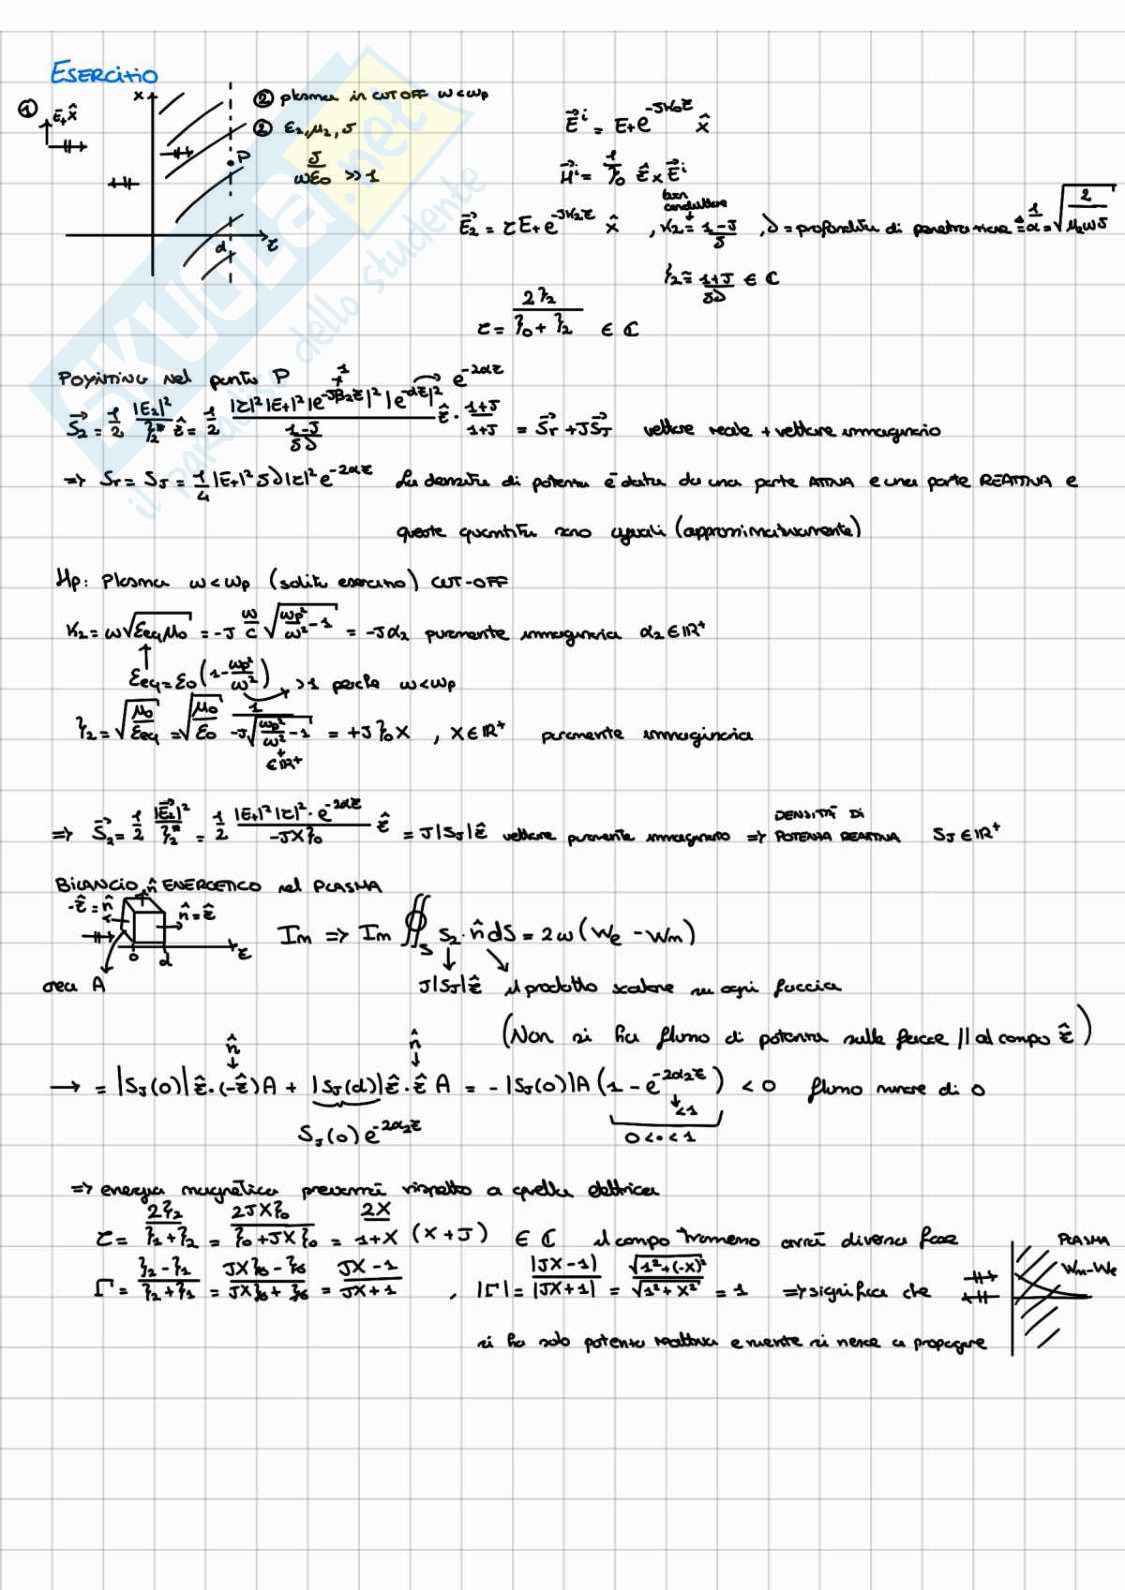 ESERCIZIO
① E+ x̂
x
z
d
P
② plasma in CUT OFF ω<ωp
② ε2, μ2, σ
σ/(ωε0) >> 1
E⃗^i = E+ e^{-jk0z} x̂
H⃗^i = 1/η0 ẑ × E⃗^i
E⃗2 = τ E+ e^{-jk2z} x̂ , buon conduttore k2 = (1-j)/δ , δ = profondità di penetrazione = 1/α = √(2/(μ2ωσ))
η2 ≅ (1+j)/(σδ) ∈ ℂ
τ = 2η2/(η0+η2) ∈ ℂ
POYNTING nel punto P
S⃗2 = 1/2 |E2|²/η2* ẑ = 1/2 |τ|²|E+|²|e^{-jβ2z}|²|e^{-αz}|²/((1-j)/(σδ)) ẑ · (1+j)/(1+j) = S⃗r + jS⃗j vettore reale + vettore immaginario
1
e^{-2αz}
=> Sr = Sj = 1/4 |E+|² σδ|τ|² e^{-2αz} La densità di potenza è data da una parte ATTIVA e una parte REATTIVA e
queste quantità sono uguali (approssimativamente)
Hp: Plasma ω<ωp (solito esercizio) CUT-OFF
k2 = ω√(εeq μ0) = -j ω/c √(ωp²/ω² - 1) = -jα2 puramente immaginaria α2 ∈ ℝ+
εeq = ε0 (1 - ωp²/ω²) >1 perché ω<ωp
η2 = √(μ0/εeq) = √(μ0/ε0) 1/(-j√(ωp²/ω² - 1)) = +jη0X , X ∈ ℝ+ puramente immaginaria
∈ ℝ+
=> S⃗2 = 1/2 |E⃗2|²/η2* = 1/2 |E+|²|τ|²·e^{-2αz}/(-jXη0) ẑ = j|Sj|ẑ vettore puramente immaginario => DENSITÀ DI POTENZA REATTIVA Sj ∈ ℝ+
BILANCIO ENERGETICO nel PLASMA
n̂
-ẑ = n̂
n̂ = ẑ
0 d z
area A
Im => Im ∯_S S2·n̂ dS = 2ω(We - Wm)
j|Sj|ẑ il prodotto scalare su ogni faccia
(Non si ha flusso di potenza sulle facce // al campo ẑ)
n̂ n̂
→ = |Sj(0)|ẑ·(-ẑ)A + |Sj(d)|ẑ·ẑ A = -|Sj(0)|A (1 - e^{-2α2z}) < 0 flusso minore di 0
<1
Sj(0)e^{-2α2z}
0<·<1
=> energia magnetica prevarrà rispetto a quella elettrica
τ = 2η2/(η1+η2) = 2jXη0/(η0+jXη0) = 2X/(1+X) (X+j) ∈ ℂ il campo trasmesso avrà diversa fase
Γ = (η2-η1)/(η2+η1) = (jXη0-η0)/(jXη0+η0) = (jX-1)/(jX+1) , |Γ| = |jX-1|/|jX+1| = √(1²+(-X)²)/√(1²+X²) = 1 => significa che
PLASMA
Wm-We
si ha solo potenza reattiva e niente si riesce a propagare
SKUOLA.net
il paradiso dello studente